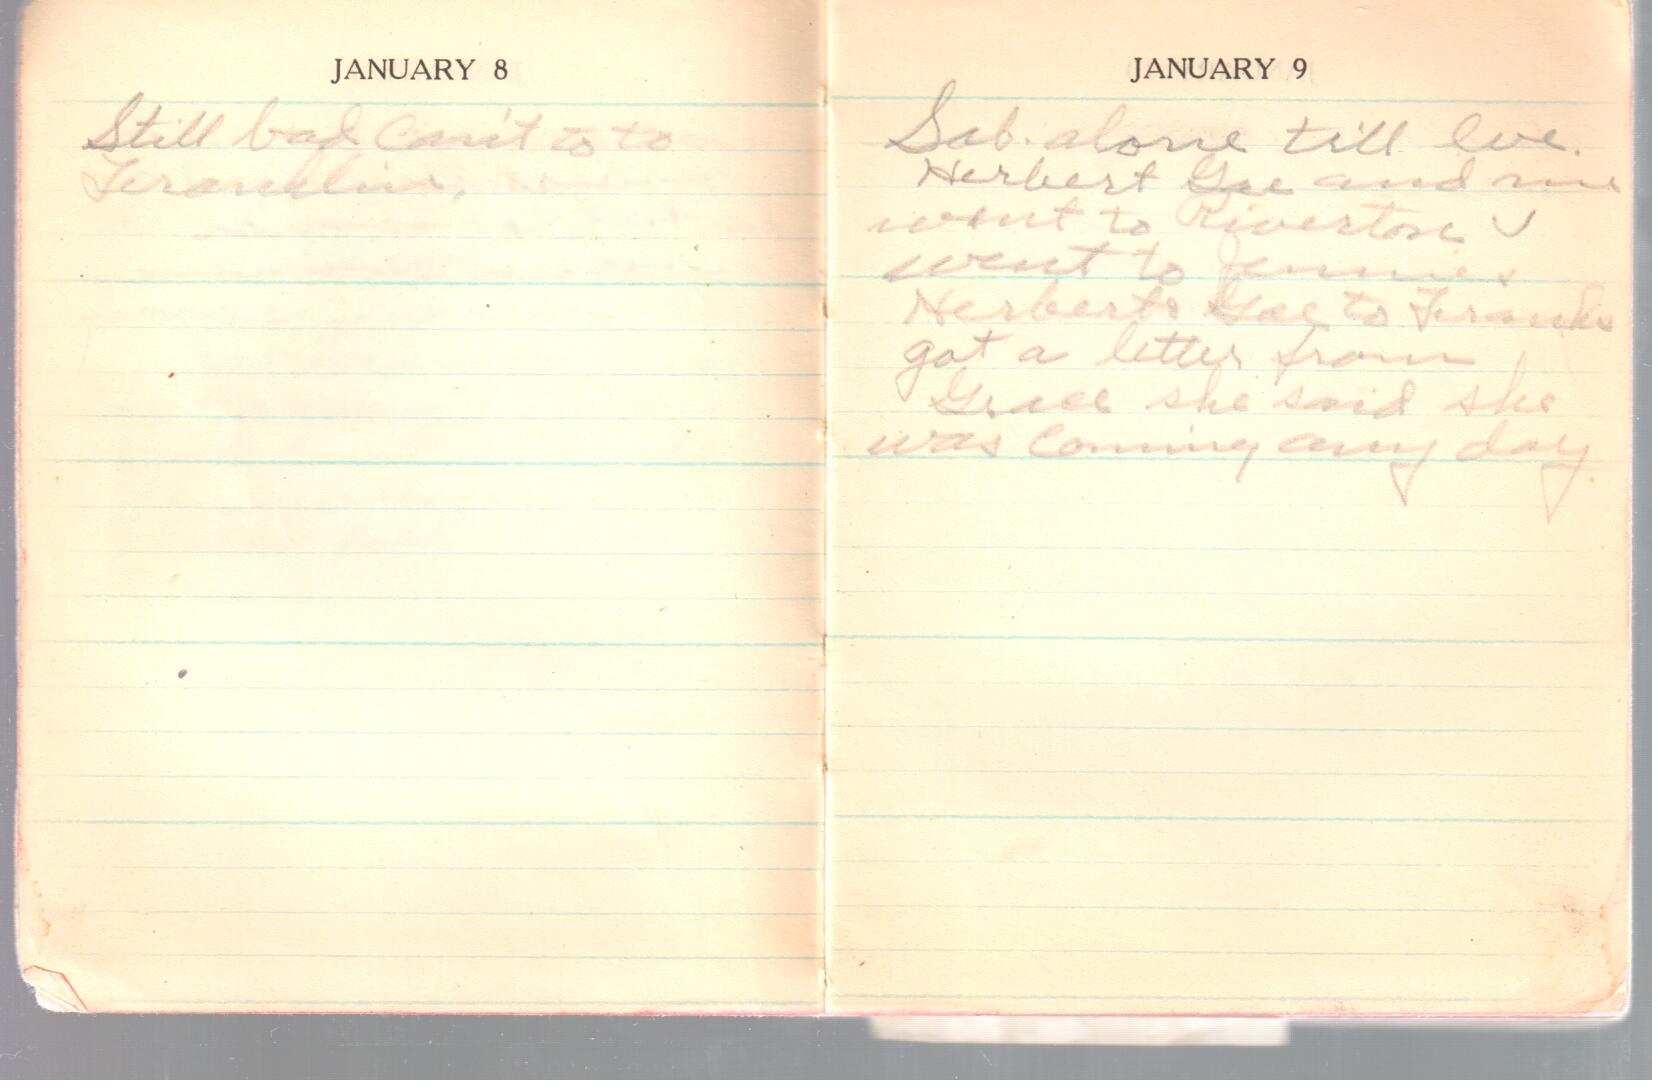 JANUARY 8
Still bad Can't to to
Franklin.
JANUARY 9
Sab. alone till Eve.
Herbert Gae and me
went to Riverton I
went to Jennies
Herberts Gae to Franks
got a letter from
Grace she said she
was coming any day